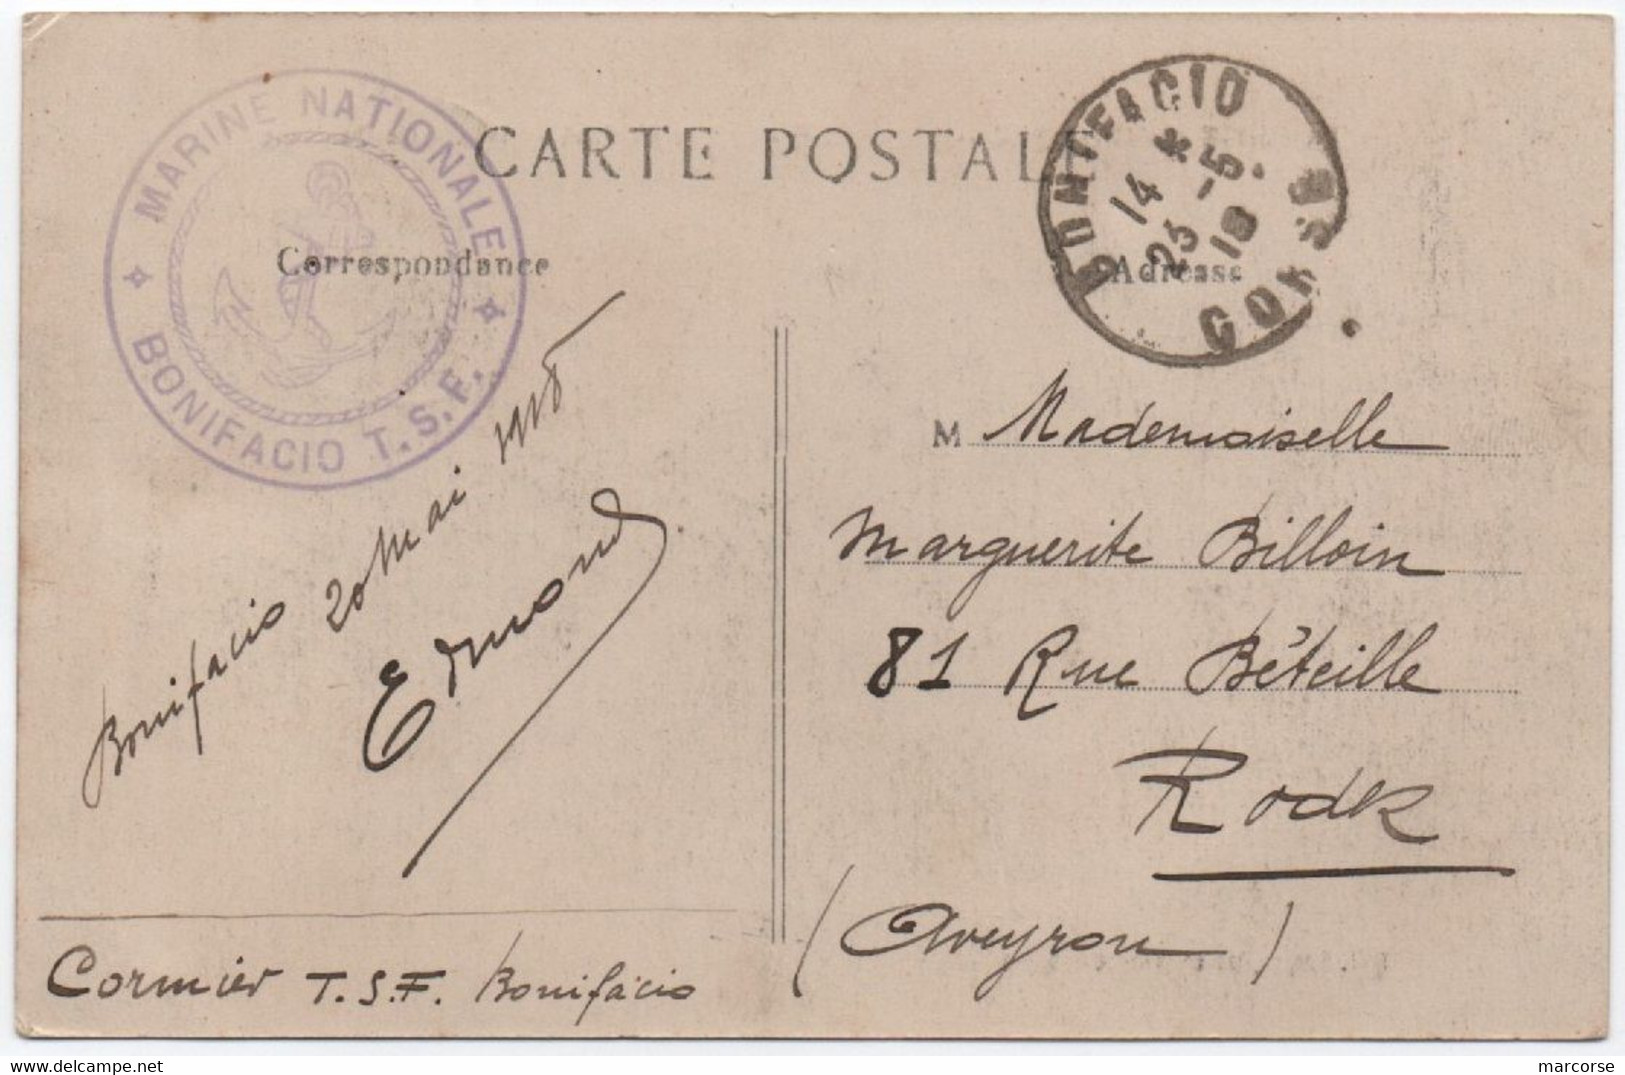 CARTE POSTALE
MARINE NATIONALE
BONIFACIO T.S.F.
BONIFACIO
14 * 
23 -5
18
CORSE
Correspondance
Adresse
Bonifacio 20 Mai 1918
Edmond
M Mademoiselle
Marguerite Billoin
81 Rue Béteille
Rodez
(Aveyron)
Cormier T.S.F. Bonifacio
delcampe.net
marcorse